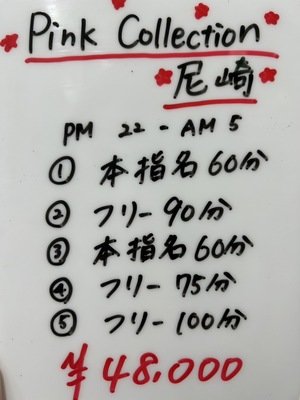 Pink Collection
尼崎
PM 22 - AM 5
① 本指名 60分
② フリー 90分
③ 本指名 60分
④ フリー 75分
⑤ フリー 100分
¥48,000